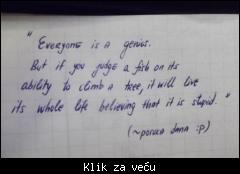 " Everyone is a genius.
But if you judge a fish on its
ability to climb a tree, it will live
its whole life believing that it is stupid. "
(~poruka dana :p)
Klik za veču